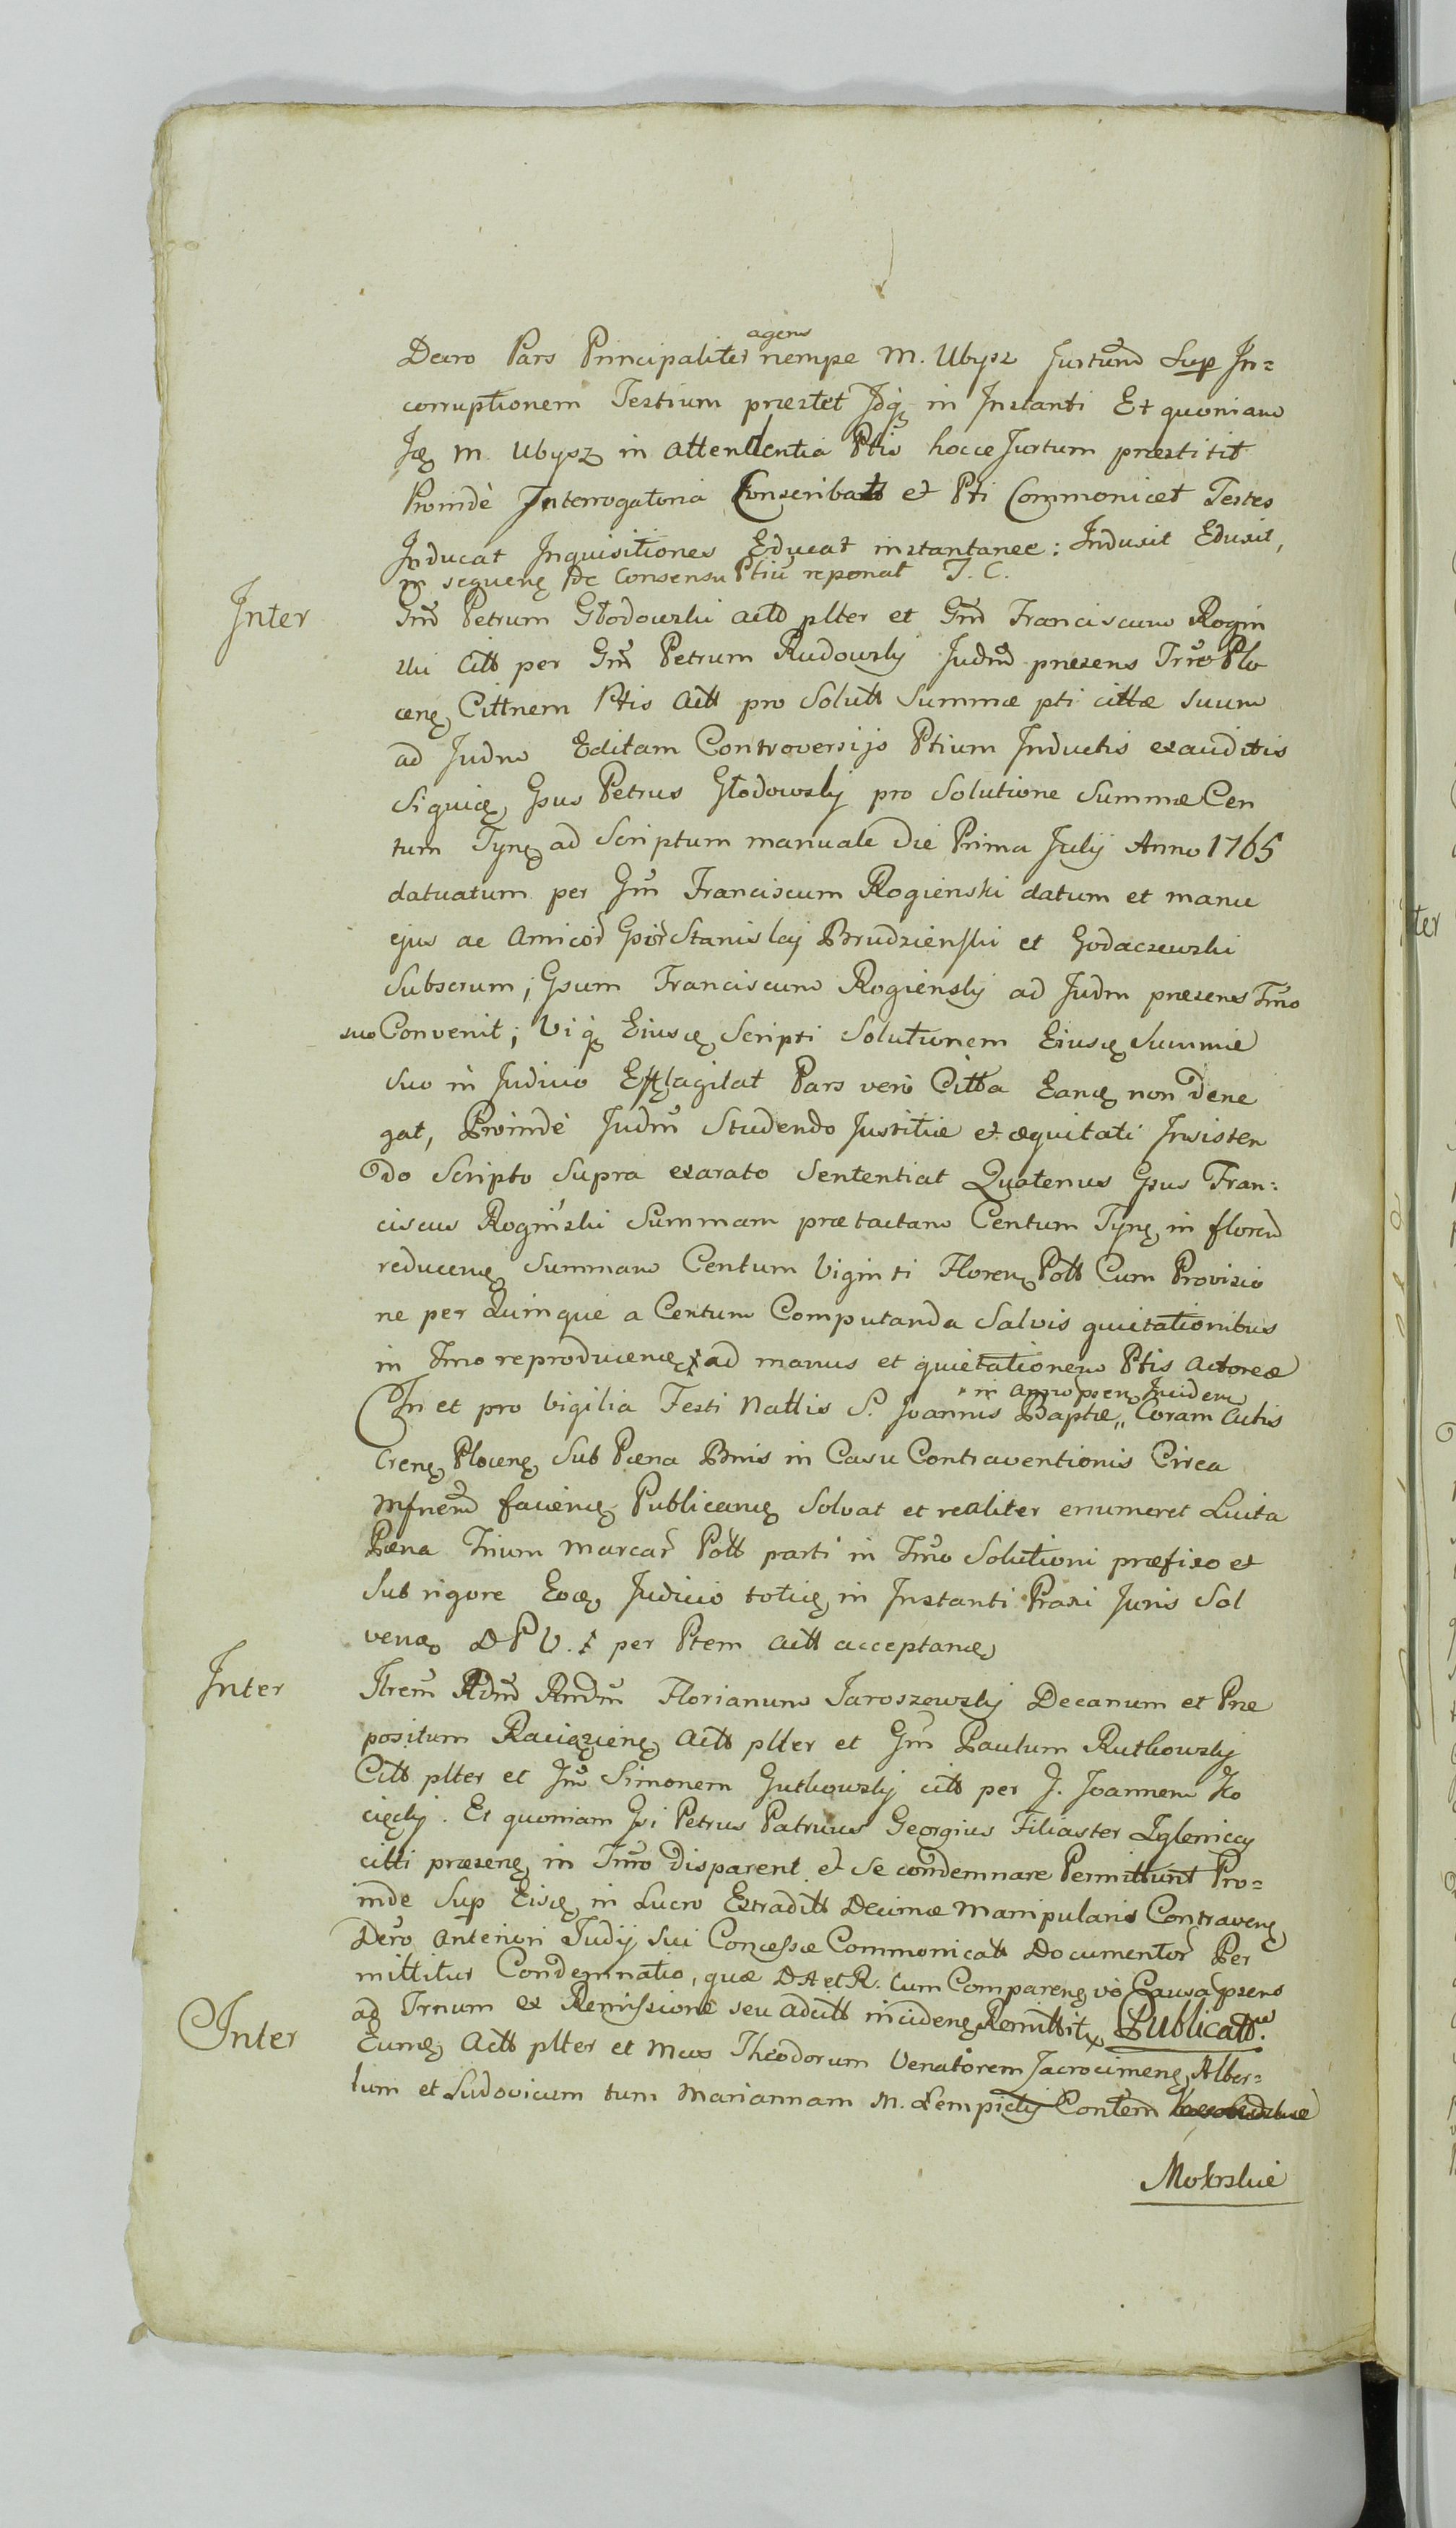 agens
Decro Pars Principaliter nempe M. Ubysz Jurtum Sup In=
corruptionem Testium præstet Idq in Instanti Et quoniam
M. Ubysz in attendentia Ptis hocce Jurtum præstitit
Proindè Interrogatoria Conscribat et Pti Commonicet Testes
Inducat Inquisitiones Educat instantanee: Induxit Eduxit,
in sequenę de Consensu Ptiū reponat T. C.
Inter
Gnd Petrum Głodowski actt plter et Gnd Franciscum Rogin
ski citt per Gm Petrum Rudowsky Judm præsens Trro Plo
cenę Cittnem Ptis Actt pro Solutt Summæ pti cittæ suum
ad Judm Editam Controversijs Ptium Inductis exauditis
Siquię Gsus Petrus Głodowsky pro Solutione Summæ Cen
tum Tynę ad Scriptum manuale die Prima Julij Anno 1765
datuatum per Gm Franciscum Rogienski datum et manu
ejus ac Amicor Gsior Stanislaj Brudzienski et Godaczewski
Subscrum; Gsum Franciscum Rogiensky ad Judm præsens Tmo
suo Convenit; Vi q Eiusę Scripti Solutionem Eiusę Summæ
suo in Judicio Efflagitat Pars verò Citta Eamę non Dene
gat, Proindè Judm Studendo Justitiæ et æquitati Insisten
do Scripto Supra exarato Sententiat Quatenus Gsus Fran=
ciscus Roginski Summam prætactam Centum Tynę in floren
reducenę Summam Centum Viginti Florenę Poll Cum Provisio
ne per Quinque a Centum Computanda Salvis quietationibus
in Tmo reproducenę ad manus et quietationem Ptis Actoreæ
" in Anno præn Inciden
In et pro Vigilia Festi Nattis S. Joannis Baptæ " Coram Actis
Crenę Plocenę Sub Pæna Bnis in Casu Contraventionis Circa
Mfnem facienę Publicanę Solvat et realiter enumeret Luita
Pæna Trium Marcar Poll parti in Tmo Solutioni præfixo et
Sub rigore Eoę Judicio totię in Instanti Praxi Juris Sol
venę D P V. per Ptem Actt acceptanę
Inter
Itrem Adm Rndm Florianum Jaroszewsky Decanum et Præ
positum Raciązienę Actt plter et Gm Paulum Rutkowsky
Citt plter et Gm Simonem Gutkowsky citt per J. Joannem Ko
cięcky. Et quoniam Gsi Petrus Patruus Georgius Filiaster Lgleniccy
citti præsenę in Tmo Disparent et Se condemnare Permittunt Pro=
inde Sup Eisę in Lucro Extraditt Decimæ Manipularis Contravenę
Decro Anteriori Judij Sui Concessæ Commonicatt Documentor Per
mittitur Condemnatio, quæ D A et R. Cum Comparenę vò Causa psens
ad Trnum ex Remissione seu adcitt incidenę Remittit, Publicatt.
Inter
Eumę Actt plter et Mcos Theodorum Venatorem Zacrocimenę Alber=
tum et Ludovicum tum Mariannam M. Lempicky Contem
Mokrskie